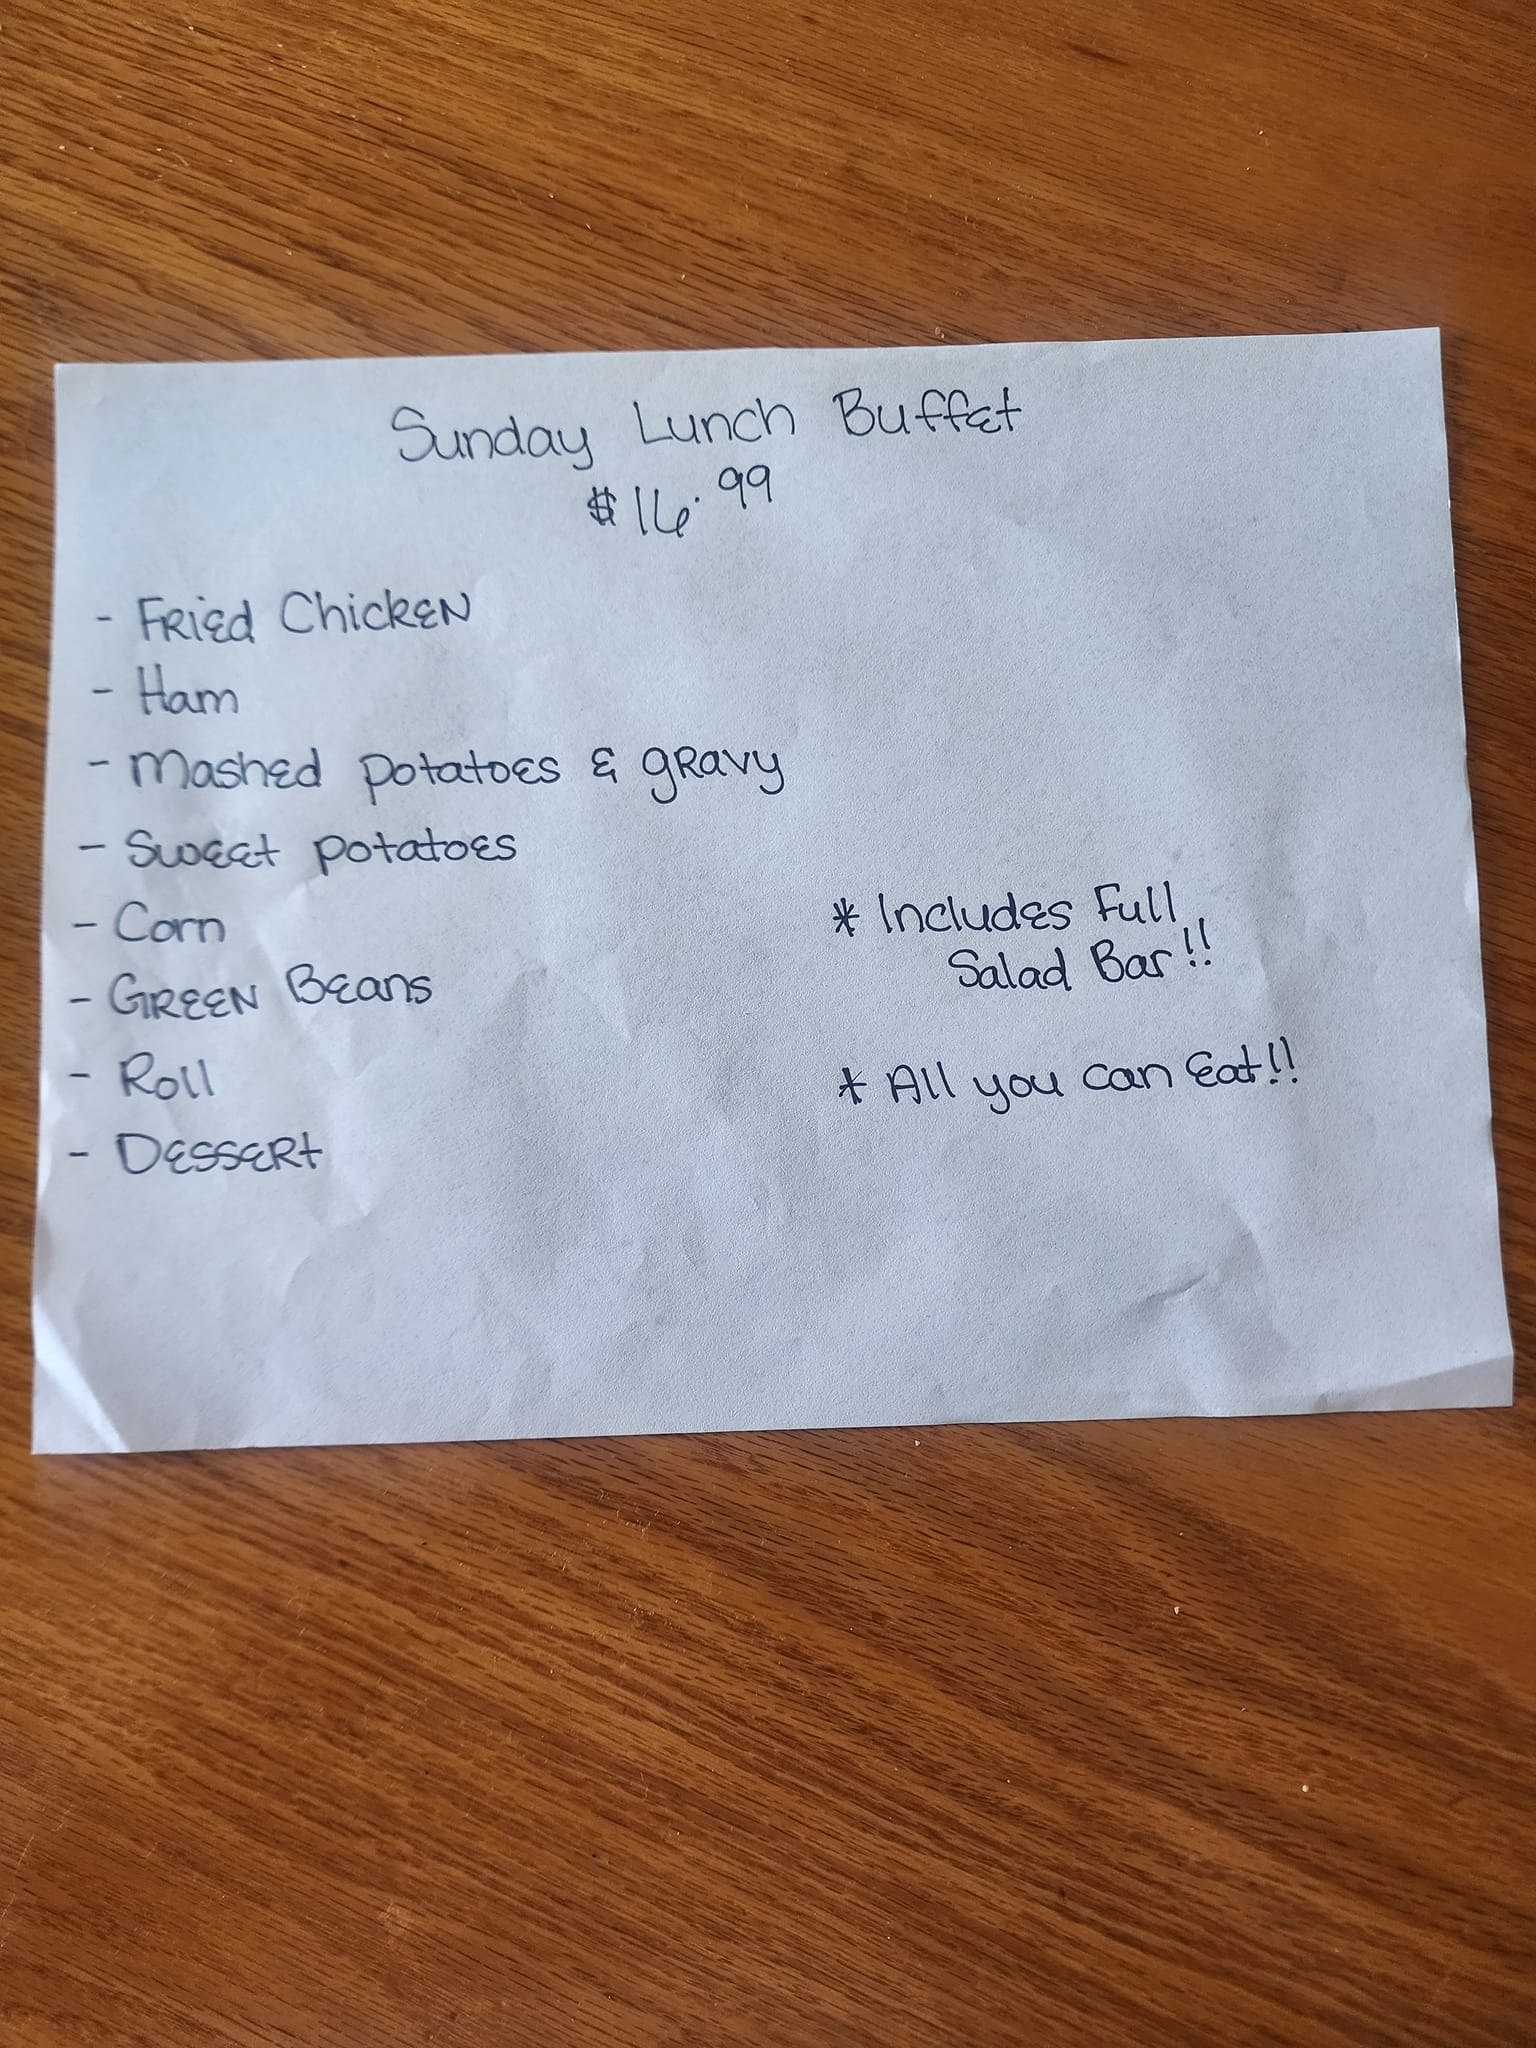 Sunday Lunch Buffet
$16.99
- Fried Chicken
- Ham
- Mashed potatoes & gravy
- Sweet potatoes
- Corn
- Green Beans
- Roll
- Dessert
* Includes Full
Salad Bar!!
* All you can Eat!!